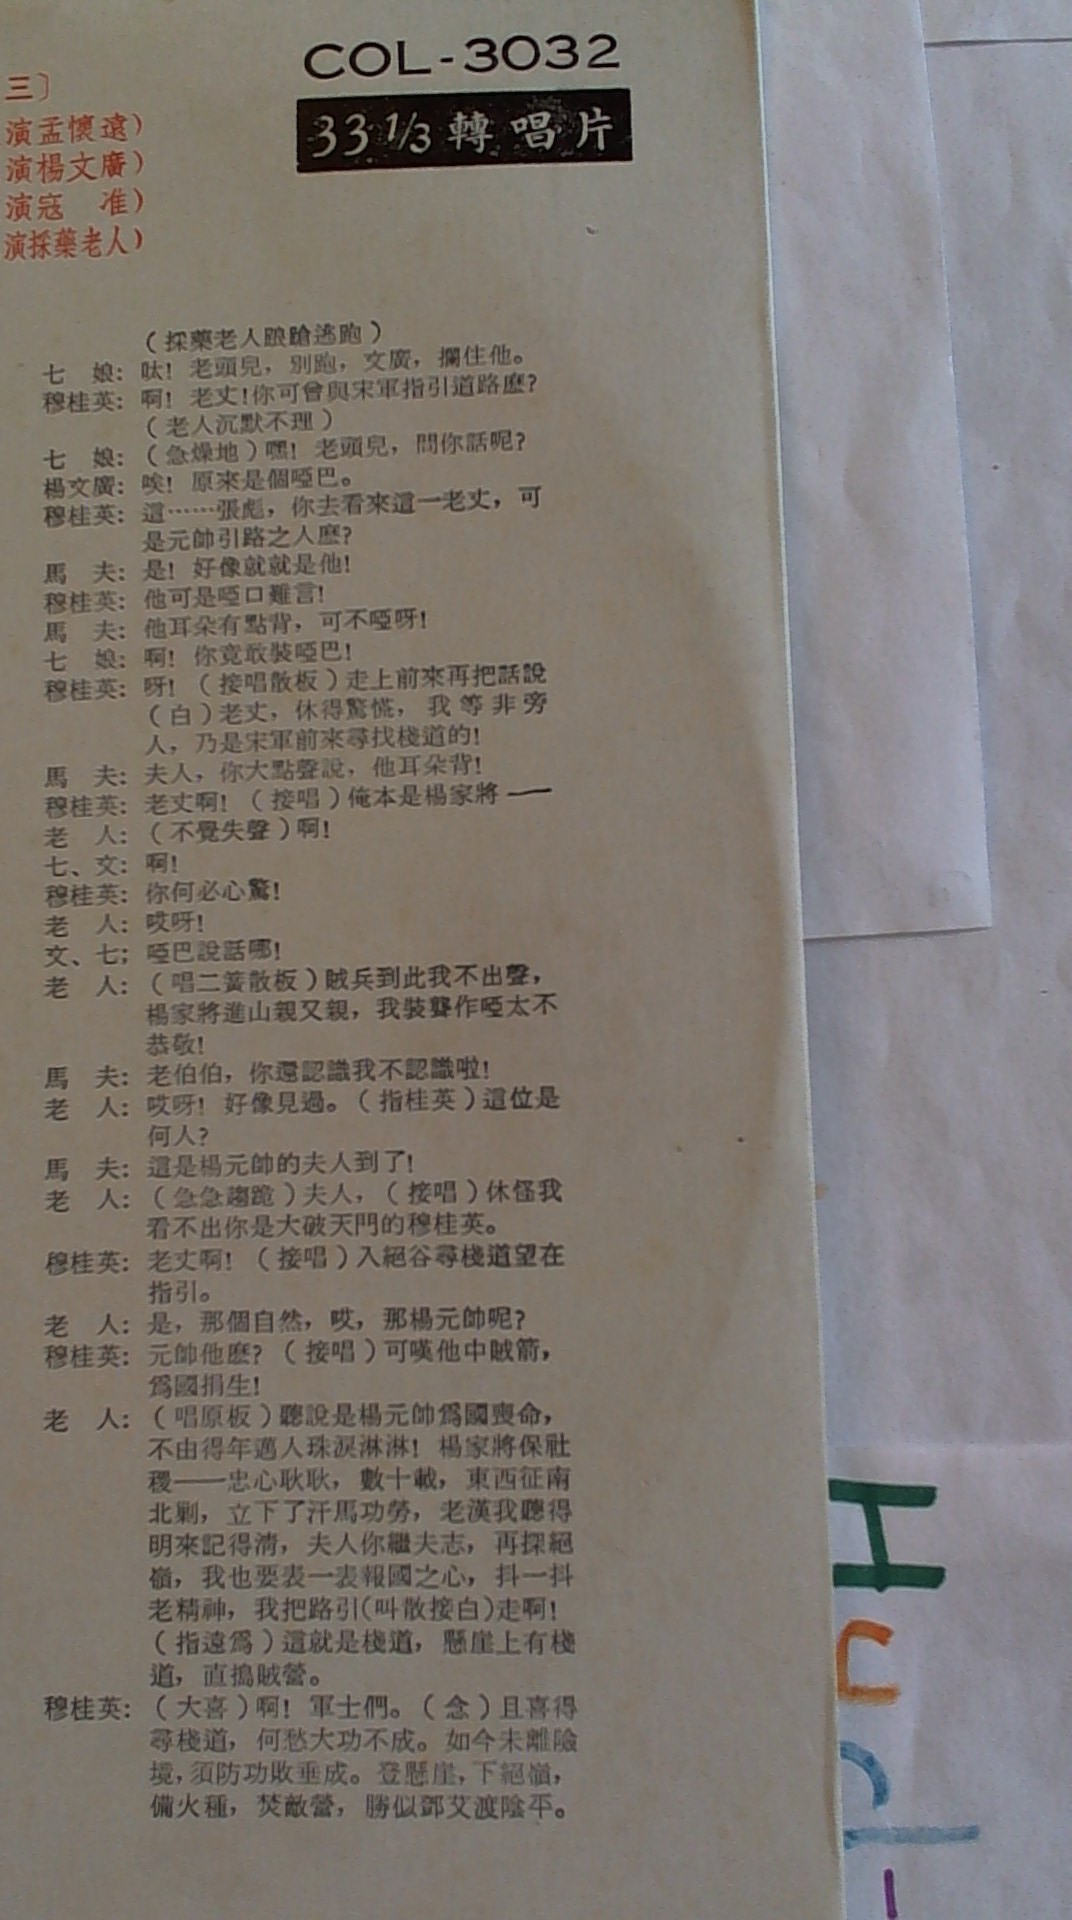 COL-3032
33 1/3 轉唱片
三〕
演孟懷遠)
演楊文廣)
演寇　准)
演採藥老人)
(採藥老人踉蹌逃跑)
七　娘: 呔! 老頭兒，別跑，文廣，攔住他。
穆桂英: 啊! 老丈!你可曾與宋軍指引道路麼?
(老人沉默不理)
七　娘: (急燥地)嘿! 老頭兒，問你話呢?
楊文廣: 唉! 原來是個啞巴。
穆桂英: 這……張彪，你去看來這一老丈，可
是元帥引路之人麼?
馬　夫: 是! 好像就就是他!
穆桂英: 他可是啞口難言!
馬　夫: 他耳朵有點背，可不啞呀!
七　娘: 啊! 你竟敢裝啞巴!
穆桂英: 呀! (接唱散板)走上前來再把話說
(白)老丈，休得驚慌，我等非旁
人，乃是宋軍前來尋找棧道的!
馬　夫: 夫人，你大點聲說，他耳朵背!
穆桂英: 老丈啊! (接唱)俺本是楊家將——
老　人: (不覺失聲)啊!
七、文: 啊!
穆桂英: 你何必心驚!
老　人: 哎呀!
文、七: 啞巴說話哪!
老　人: (唱二簧散板)賊兵到此我不出聲，
楊家將進山親又親，我裝聾作啞太不
恭敬!
馬　夫: 老伯伯，你還認識我不認識啦!
老　人: 哎呀! 好像見過。(指桂英)這位是
何人?
馬　夫: 這是楊元帥的夫人到了!
老　人: (急急趨跪)夫人，(接唱)休怪我
看不出你是大破天門的穆桂英。
穆桂英: 老丈啊! (接唱)入絕谷尋棧道望在
指引。
老　人: 是，那個自然，哎，那楊元帥呢?
穆桂英: 元帥他麼? (接唱)可嘆他中賊箭，
爲國捐生!
老　人: (唱原板)聽說是楊元帥爲國喪命，
不由得年邁人珠淚淋淋! 楊家將保社
稷——忠心耿耿，數十載，東西征南
北剿，立下了汗馬功勞，老漢我聽得
明來記得清，夫人你繼夫志，再探絕
嶺，我也要表一表報國之心，抖一抖
老精神，我把路引(叫散接白)走啊!
(指遠爲)這就是棧道，懸崖上有棧
道，直搗賊營。
穆桂英: (大喜)啊! 軍士們。(念)且喜得
尋棧道，何愁大功不成。如今未離險
境，須防功敗垂成。登懸崖，下絕嶺，
備火種，焚敵營，勝似鄧艾渡陰平。